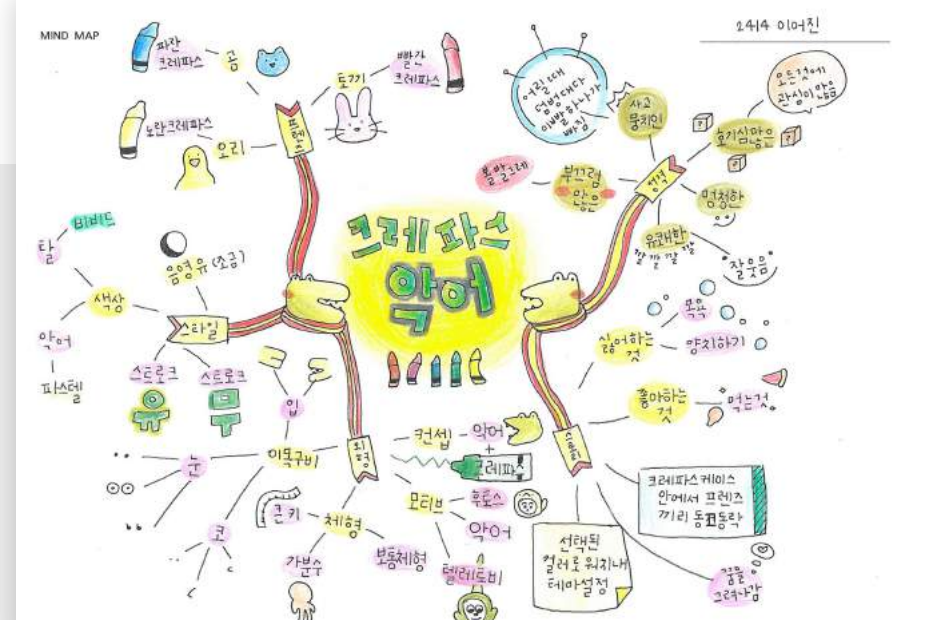 MIND MAP
2414 이어진
크레파스
악어
프렌즈
곰
파란
크레파스
토끼
빨간
크레파스
오리
노란크레파스
스타일
음영유(조금)
색상
비비드
탈
악어
파스텔
스트로크
스트로크
외형
이목구비
입
눈
코
체형
큰키
가분수
보통체형
컨셉
악어
+
크레파스
모티브
후토스
악어
텔레토비
성격
사고
뭉치인
어릴때
덤벙대다
이빨하나가
빠짐
호기심많은
모든것에
관심이많음
부끄럼
많은
볼발그레
멍청한
유쾌한
깔 깔 깔 깔
"잘웃음"
싫어하는
것
목욕
양치하기
좋아하는
것
먹는것
크레파스케이스
안에서 프렌즈
끼리 동고동락
선택된
컬러로 위치내
테마설정
꿈을
그려나감